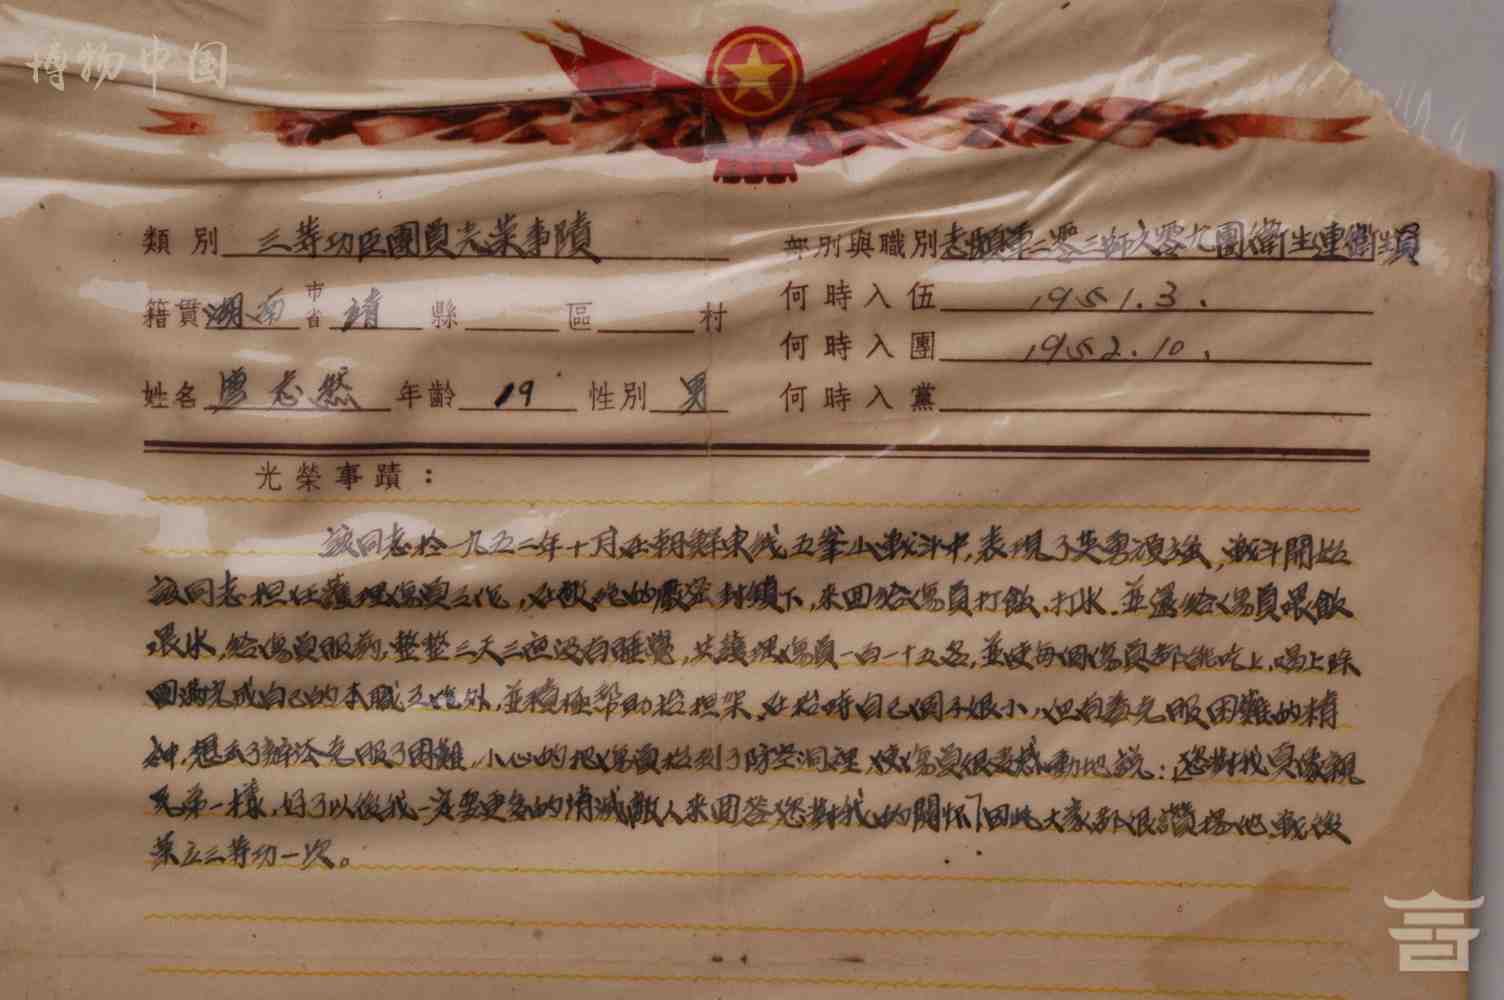 博物中国
類別 三等功臣團員光荣事蹟
部別與職別 志願軍二零三師六零九團衛生連衛生員
籍貫 湖南 市省 靖 縣 區 村
何時入伍 1951.3.
何時入團 1952.10.
姓名 志然 年齡 19 性別 男
何時入黨
光榮事蹟：
該同志於一九五二年十月在朝鮮東线五峯山战斗中，表現了英勇顽强，战斗開始
該同志担任護理傷員工作，在敵炮的嚴密封鎖下，来回给傷員打飲，打水，並還给傷員喂飲
喂水，给傷員服药，整整三天三夜没有睡覺，共護理傷員一百一十五名，並使每個傷員都能吃上，喝上除
圆满完成自己的本職工作外，並積極幫助抬担架，在抬時自己個子很小，但有着克服困難的精
神，想出了辦法克服了困難，小心的把傷員抬到了防空洞裡，使傷員很受感動地說：您對我真像親
兄弟一樣，好了以後我一定要更多的消滅敵人来回答您對我的關怀"因此大家都很讚揚他，戰後
荣立三等功一次。